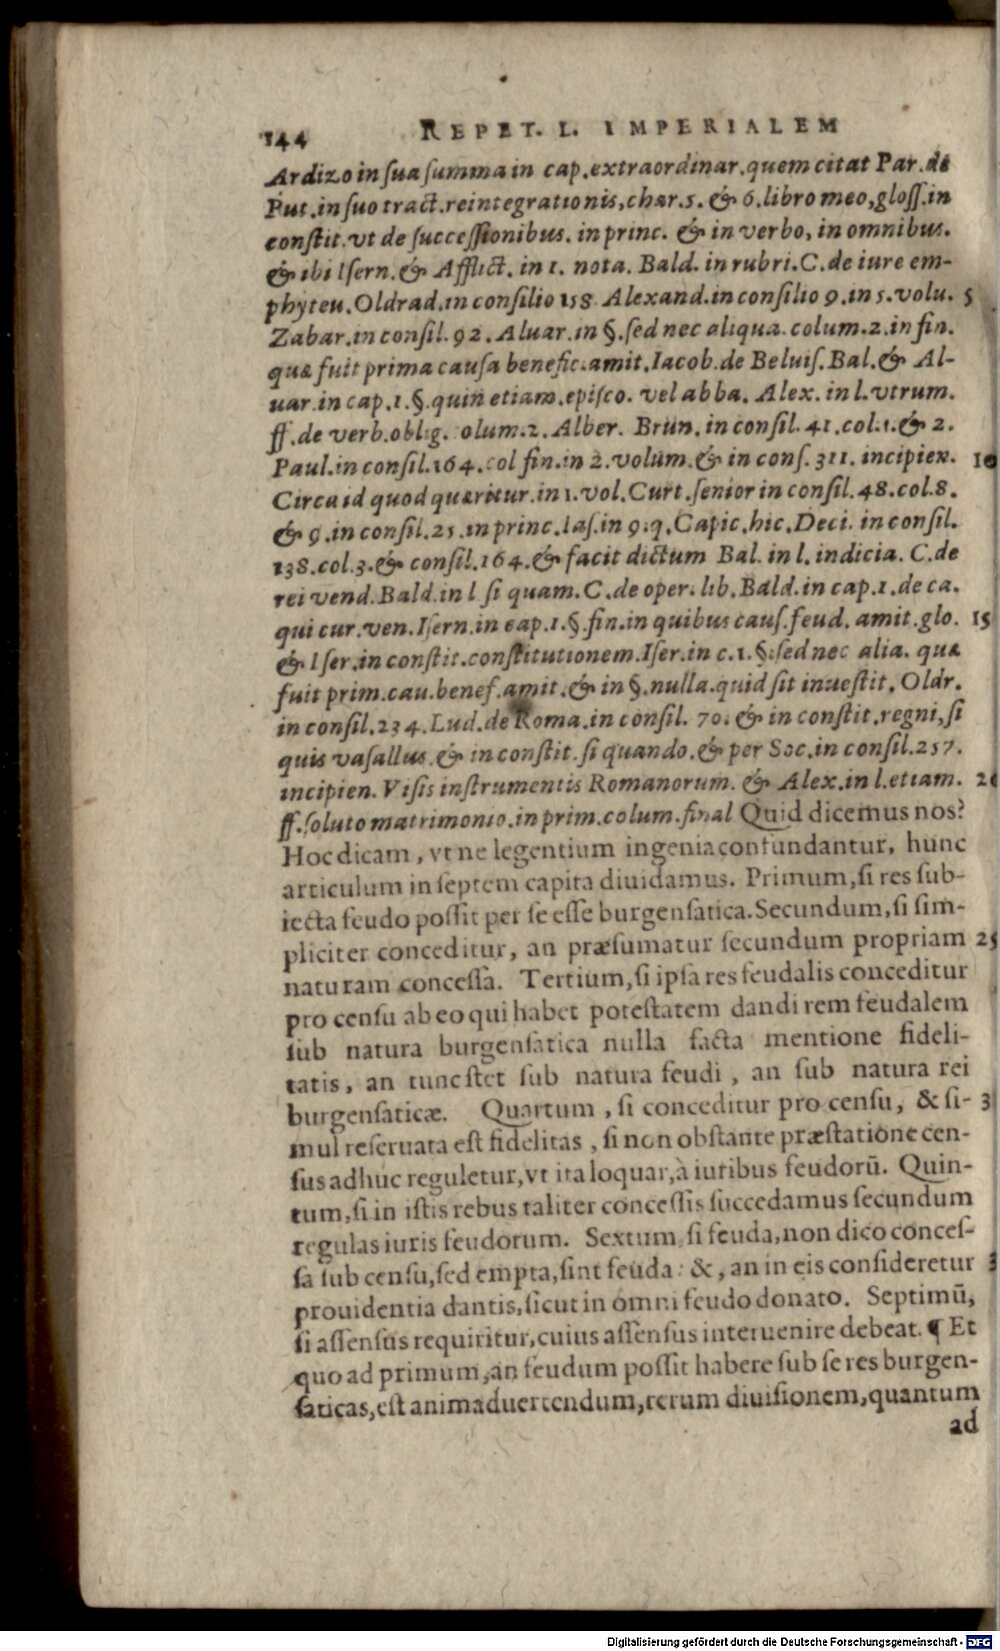 144 REPET. L. IMPERIALEM
Ardizo in ſua ſumma in cap. extraordinar. quem citat Par. de
Put. in ſuo tract. reintegrationis, char. 5. & 6. libro meo, gloſſ. in
conſtit. vt de ſucceſſionibus. in princ. & in verbo, in omnibus.
& ibi Iſern. & Afflict. in 1. nota. Bald. in rubri. C. de iure em-
phyteu. Oldrad. in conſilio 158. Alexand. in conſilio 9. in 5. volu. 5
Zabar. in conſil. 92. Aluar. in §. ſed nec aliqua. colum. 2. in fin.
quæ fuit prima cauſa benefic. amit. Iacob. de Beluiſ. Bal. & Al-
uar. in cap. 1. §. quin etiam. epiſco. vel abba. Alex. in l. vtrum.
ff. de verb. oblig. olum. 2. Alber. Brun. in conſil. 41. col. 1. & 2.
Paul. in conſil. 164. col fin. in 2. volum. & in conſ. 311. incipien. 10
Circa id quod quæritur. in 1. vol. Curt. ſenior in conſil. 48. col. 8.
& 9. in conſil. 25. in princ. Iaſ. in 9. q. Capic. hic. Deci. in conſil.
138. col. 3. & conſil. 164. & facit dictum Bal. in l. indicia. C. de
rei vend. Bald. in l ſi quam. C. de oper. lib. Bald. in cap. 1. de ca.
qui cur. ven. Iſern. in cap. 1. §. fin. in quibus cauſ. feud. amit. glo. 15
& Iſer. in conſtit. conſtitutionem. Iſer. in c. 1. §. ſed nec alia. quæ
fuit prim. cau. benef. amit. & in §. nulla. quid ſit inueſtit. Oldr.
in conſil. 234. Lud. de Roma. in conſil. 70. & in conſtit. regni, ſi
quis vaſallus. & in conſtit. ſi quando. & per Soc. in conſil. 257.
incipien. Viſis inſtrumentis Romanorum. & Alex. in l. etiam. 20
ff. ſoluto matrimonio. in prim. colum. final Quid dicemus nos?
Hoc dicam, vt ne legentium ingenia confundantur, hunc
articulum in ſeptem capita diuidamus. Primum, ſi res ſub-
iecta feudo poſſit per ſe eſſe burgenſatica. Secundum, ſi ſim-
pliciter conceditur, an præſumatur ſecundum propriam 25
naturam conceſſa. Tertium, ſi ipſa res feudalis conceditur
pro cenſu ab eo qui habet poteſtatem dandi rem feudalem
ſub natura burgenſatica nulla facta mentione fideli-
tatis, an tunc ſtet ſub natura feudi, an ſub natura rei
burgenſaticæ. Quartum, ſi conceditur pro cenſu, & ſi- 3
mul reſeruata eſt fidelitas, ſi non obſtante præſtatione cen-
ſus adhuc reguletur, vt ita loquar, à iuribus feudorũ. Quin-
tum, ſi in iſtis rebus taliter conceſſis ſuccedamus ſecundum
regulas iuris feudorum. Sextum ſi feuda, non dico conceſ-
ſa ſub cenſu, ſed empta, ſint feuda: &, an in eis conſideretur 3
prouidentia dantis, ſicut in omni feudo donato. Septimũ,
ſi aſſenſus requiritur, cuius aſſenſus interuenire debeat. ¶ Et
quo ad primum, an feudum poſſit habere ſub ſe res burgen-
ſaticas, eſt animaduertendum, rerum diuiſionem, quantum
ad
Digitalisierung gefördert durch die Deutsche Forschungsgemeinschaft - DFG